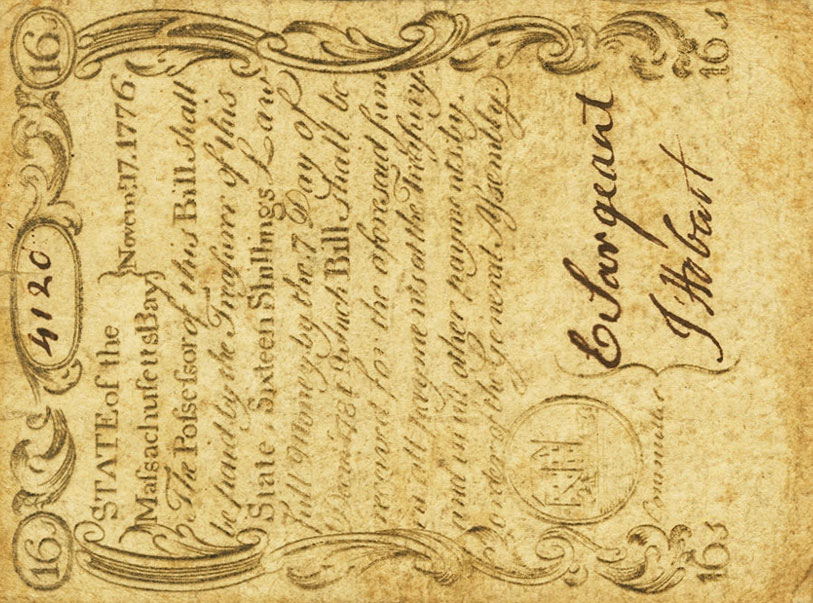 16s 4120 16s
STATE of the
Maſsachuſetts Bay } Novem: 17. 1776
The Poſseſsor of this Bill shall
be paid by the Treaſurer of this
State Sixteen Shillings Law
full Money by the 7 Day of
which Bill shall be
received for the aforesaid sum
in all payments at the Treaſury
and in all other payments by
order of the General Aſsembly.
E Sargeant
J Hobart
16s 16s